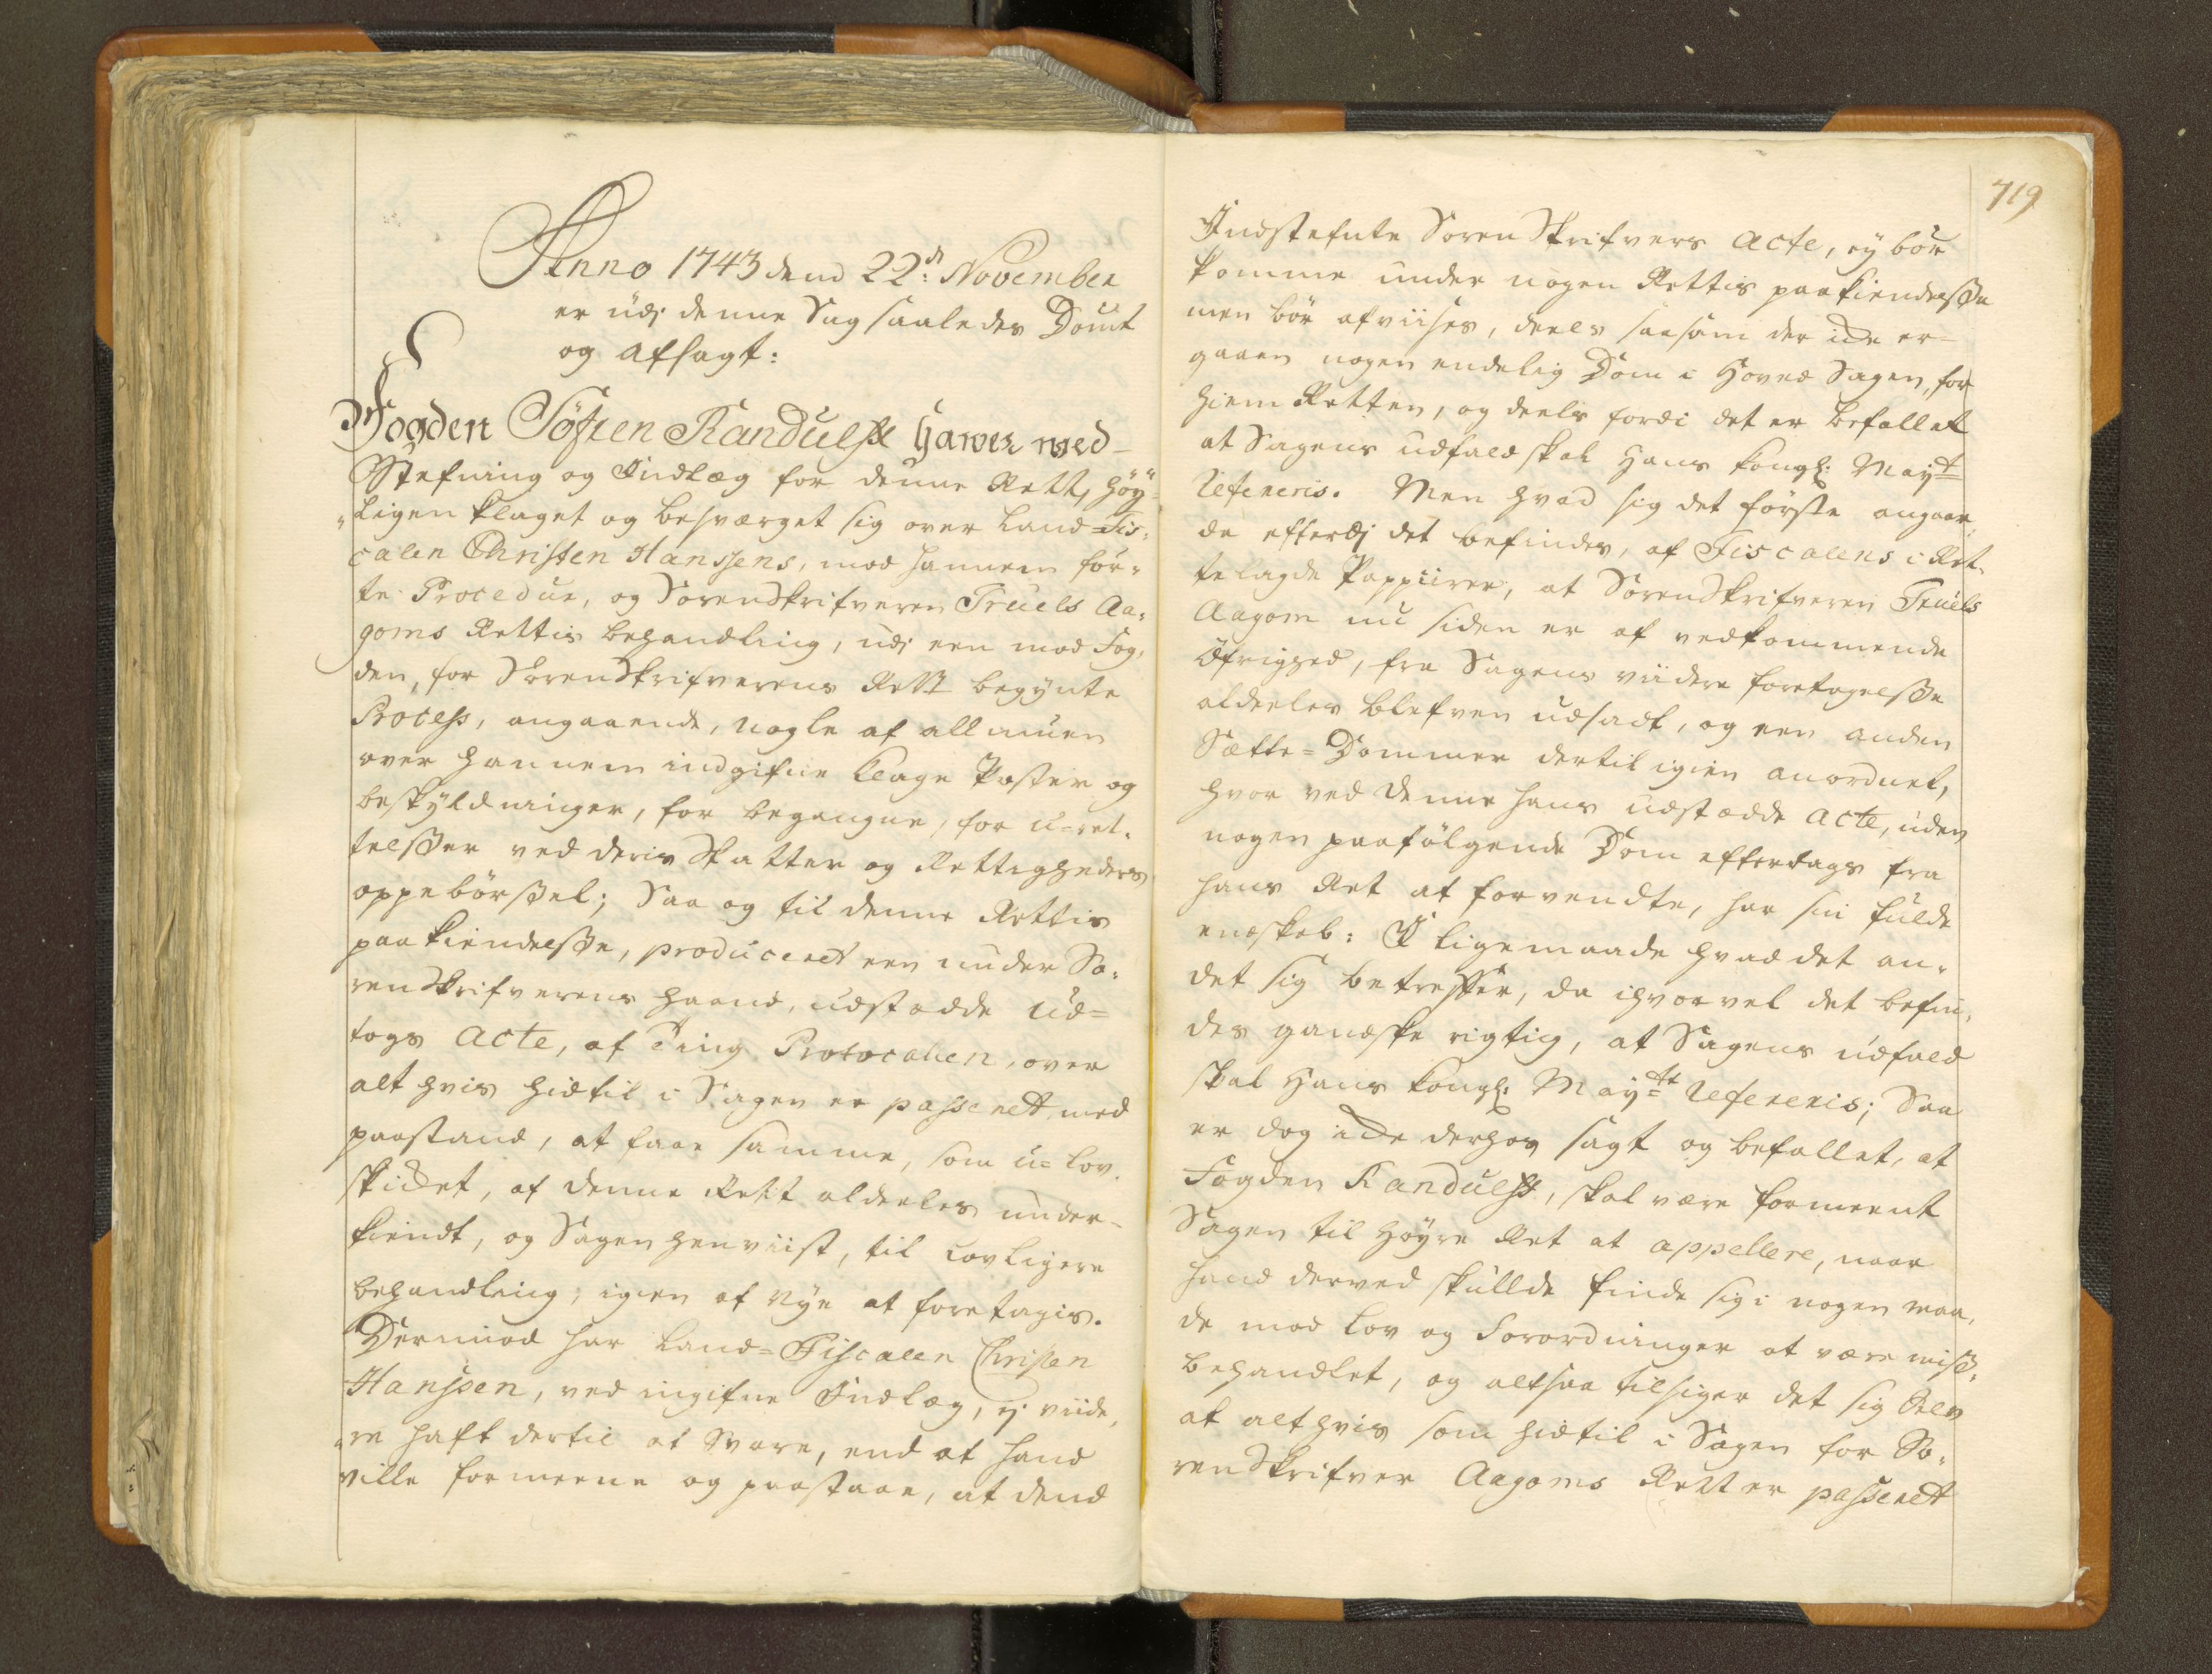 Anno 1743 dend 22:d November
er udj denne Sag saaledes Dømt
og afsagt:
Fogden Søfren Randulff haver med
Stefning og Indlæg for denne Rett, høy=
ligen klaget og besværget sig over Land=Fis=
calen Christen Hanssens, mod hannem før=
te Procedur, og Sorenskrifveren Truels Aa=
goms Rettis behandling, udj een mod Fog=
den, for Sorenskrifverens Rett begynte
Process, angaaende, nogle af allmuen
over hannem indgifne klage Poster og
beskyldninger, for begangne, for u=ret=
telsser ved deris Skatter og Rettigheders
oppebørssel; Saa og til denne Rettis
paakiendelsse, produceret een under So=
renskrifverens haand, udstædde Ud=
togs Acte, af Ting Protocollen, over
alt hvis hidtil i Sagen er passeret med
paastand, at faae samme, som u=lov=
skicket, af denne Rett aldeeles under=
kiendt, og Sagen henviist, til lovligere
behandling, igien af nye at foretagis.
Dermod har Land=Fiscalen Christen
Hanssen, ved ingifne Indlæg, ej viide=
re haft dertil at Svare, end at hand
ville formeene og paastaae, at dend
719
Indstefnte Sorenskrifvers Acte, ey bør
komme under nogen Rettis paakiendelsse
men bør afviises, deels saasom der icke er=
gaaen nogen endelig Dom i Hoved Sagen, for
hiem Retten, og deels fordi det er befallet
at Sagens udfald skal Hans Kongl: Mayt
refereris. Men hvad sig det første angaar,
da efterdj det befindes, af Fiscalens i Ret=
telagde Pappiirer, at Sorenskrifveren Truels
Aagom nu siden er af vedkommende
Øfrighed, fra Sagens viidere foretagelsse
aldeeles blefven udsadt, og een anden
Sætte=Dommer dertil igien anordnet,
hvor ved denne hans udstædde Acte, uden
nogen paafølgende Dom efterdags fra
hans Ret at forvendte, har sin fulde
endskab: I ligemaade hvad det an=
det sig betreffer, da ihvorvel det befin=
des gandske rigtig, at Sagens udfald
skal Hans Kongl: Maytt refereris; Saa
er dog icke derhos sagt og befallet, at
Fogden Randulff, skal være formeent
Sagen til høyre Ret at appellere, naar
hand derved skullde finde sig i nogen maa=
de mod Lov og Forordninger at være miss=
behandlet, og altsaa tilsiger det sig Selv
at alt hvis som hidtil i Sagen for So=
renskrifver Aagoms Rett er passeret